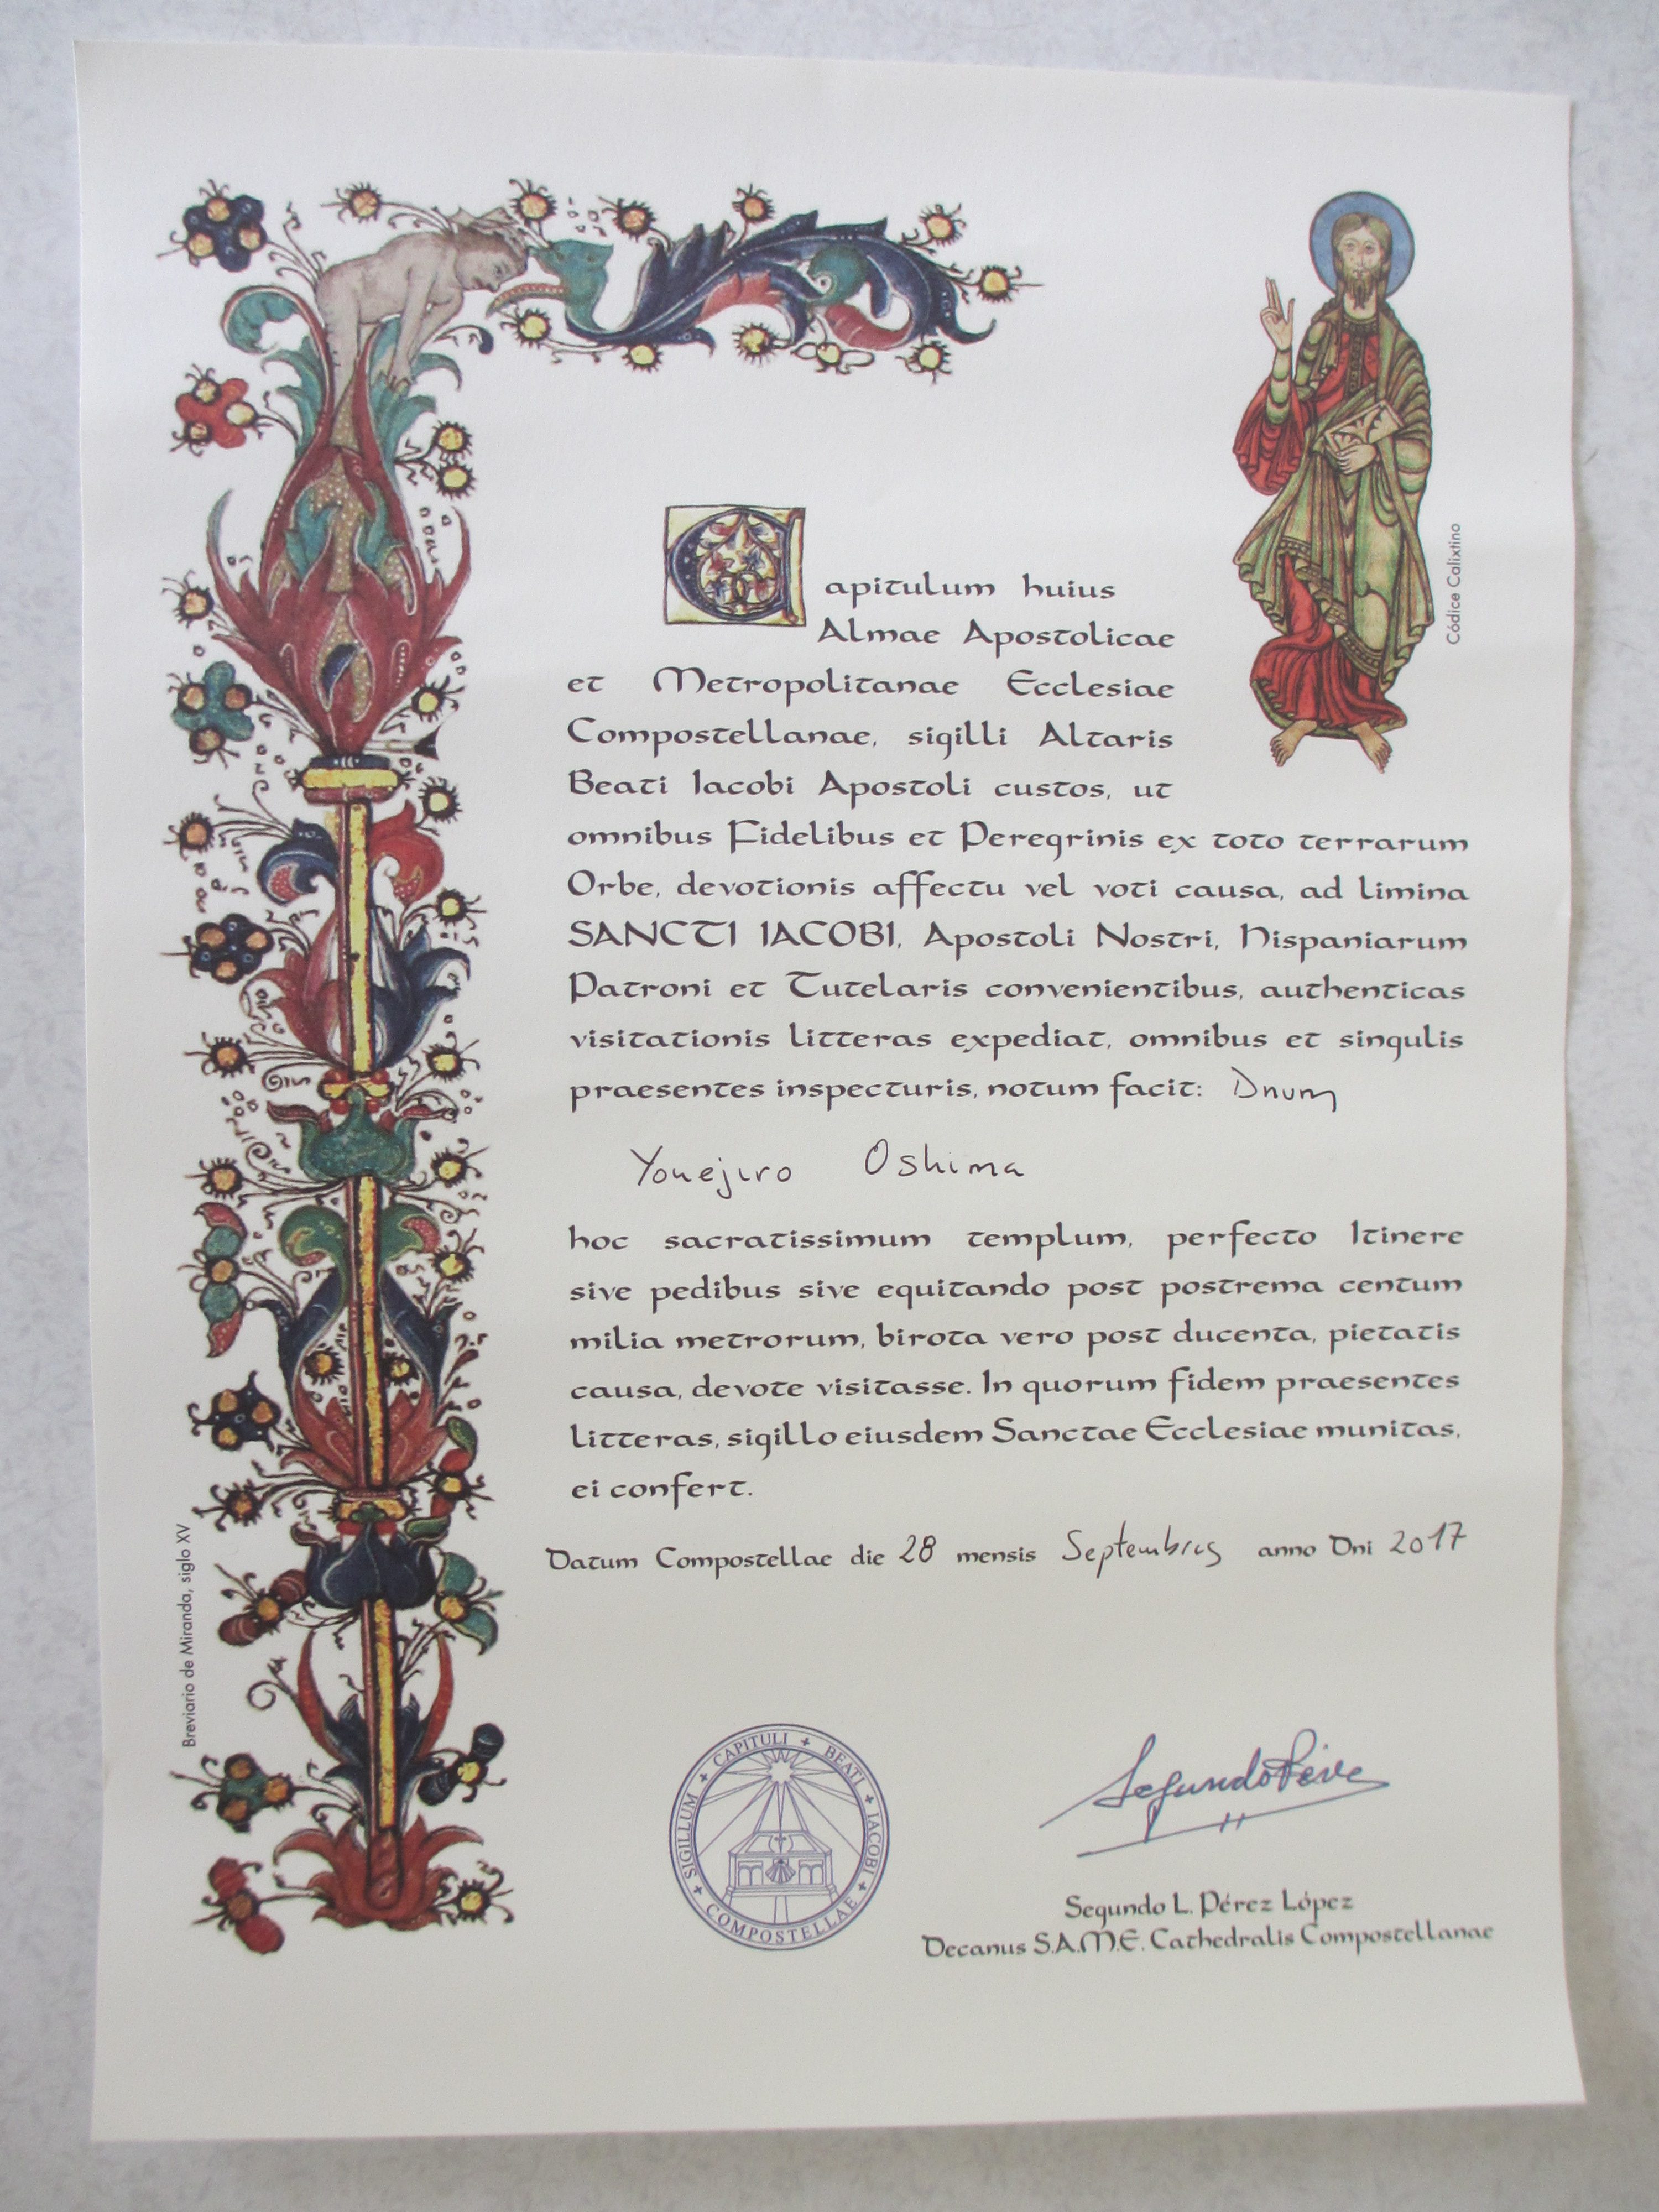 Capitulum huius
Almae Apostolicae
et Metropolitanae Ecclesiae
Compostellanae, sigilli Altaris
Beati Iacobi Apostoli custos, ut
omnibus Fidelibus et Peregrinis ex toto terrarum
Orbe, devotionis affectu vel voti causa, ad limina
SANCTI IACOBI, Apostoli Nostri, Hispaniarum
Patroni et Tutelaris convenientibus, authenticas
visitationis litteras expediat, omnibus et singulis
praesentes inspecturis, notum facit: Dnum
Yonejiro Oshima
hoc sacratissimum templum, perfecto Itinere
sive pedibus sive equitando post postrema centum
milia metrorum, birota vero post ducenta, pietatis
causa, devote visitasse. In quorum fidem praesentes
litteras, sigillo eiusdem Sanctae Ecclesiae munitas,
ei confert.
Datum Compostellae die 28 mensis Septembris anno Dni 2017
Códice Calixtino
Breviario de Miranda, siglo XV
SIGILLUM + CAPITULI + BEATI + IACOBI + COMPOSTELLAE +
Segundo Pérez
Segundo L. Pérez López
Decanus S.A.M.E. Cathedralis Compostellanae